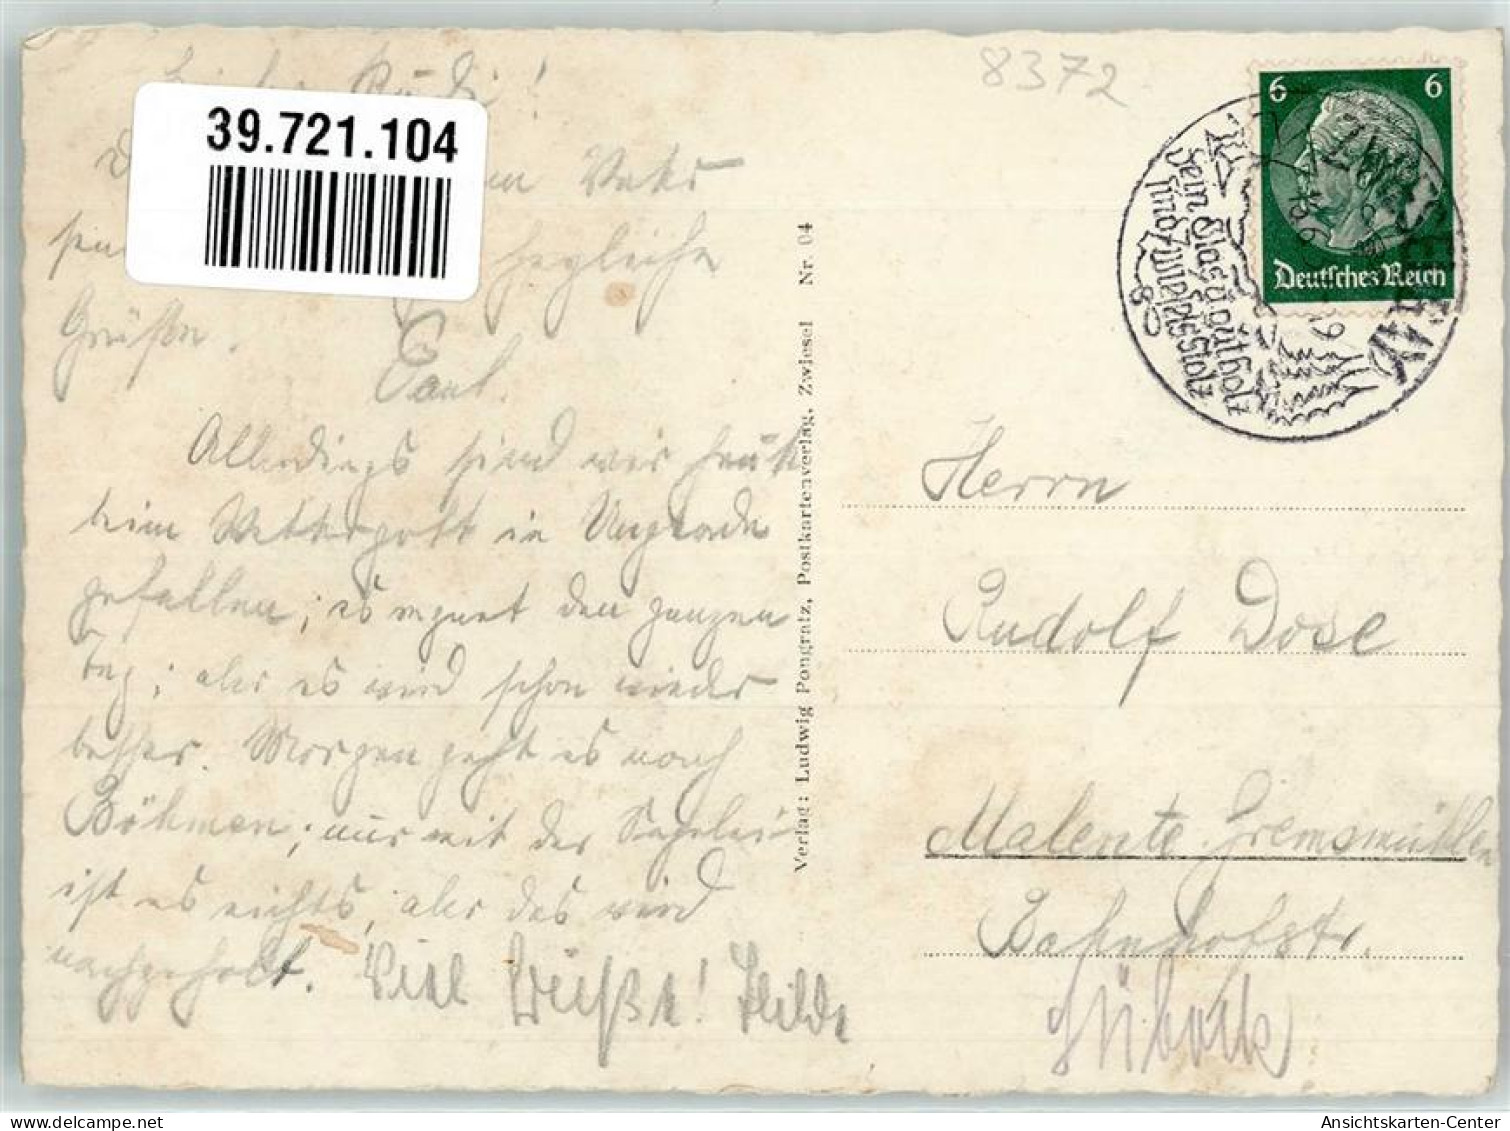 8372
Lieber Rudi!
39.721.104
Grüße.
Paul.
Allerdings sind wir heute
beim Wettergott in Ungnade
gefallen; es regnet den ganzen
Tag; aber es wird schon wieder
besser. Morgen geht es nach
Böhmen; nur mit der
ist es nichts, aber das wird
nachgeholt. Viel Grüße! Hilde
Verlag: Ludwig Pongratz, Postkartenverlag, Zwiesel Nr. 04
6 6
Deutsches Reich
ZWIESEL
Sein Glas & gut Holz
sind Zwiesels Stolz
Herrn
Rudolf Dose
Malente-Gremsmühlen
Bahnhofstr.
Lübeck
Ansichtskarten-Center